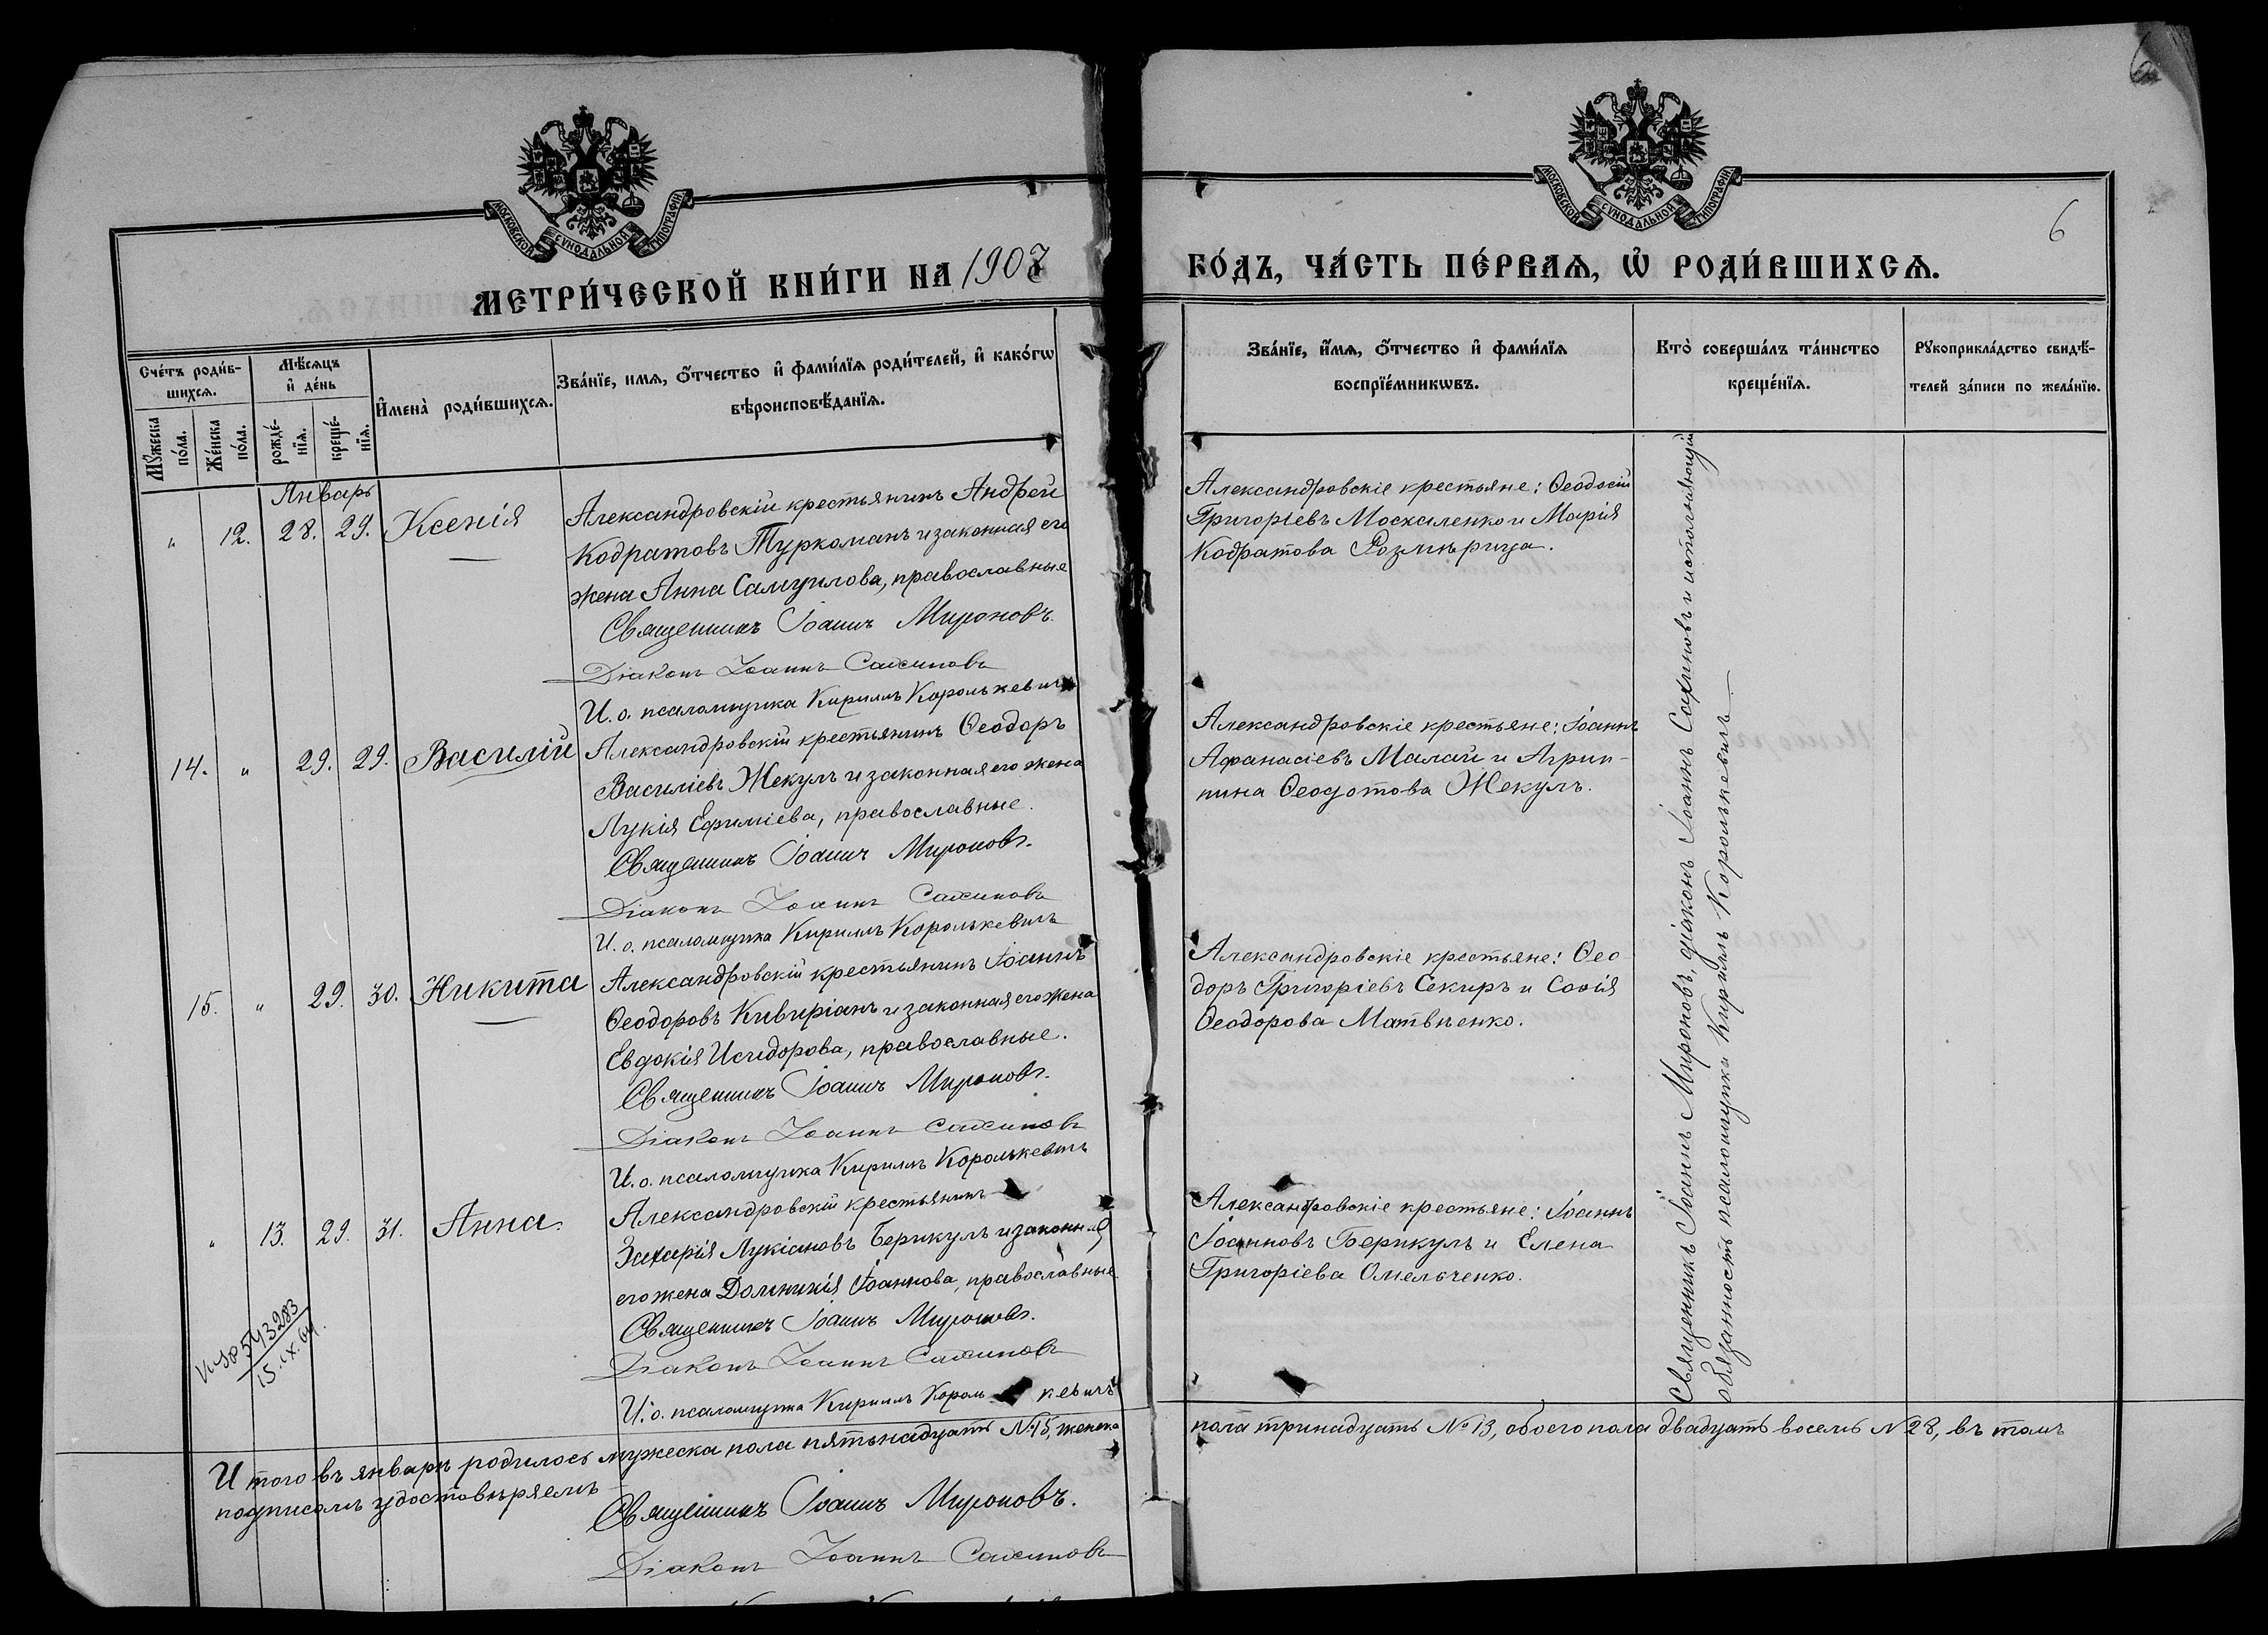 6
МОСКОВСКОЙ СѴНОДАЛЬНОЙ ТИПОГРАФІИ
МОСКОВСКОЙ СѴНОДАЛЬНОЙ ТИПОГРАФІИ
МЕТРИ́ЧЕСКОЙ КНИ́ГИ НА 1907
ГО́ДЪ, ЧА́СТЬ ПЕ́РВАѦ, Ѡ҆ РОДИ́ВШИХСѦ.
Сче́тъ роди́в-
шихсѧ.
Мꙋ́жеска
по́ла.
Же́нска
по́ла.
Мѣ́сѧцъ
и҆ де́нь
рожде́-
нїѧ.
креще́-
нїѧ.
И҆мена̀ роди́вшихсѧ.
Зва́нїе, имѧ, ѻ҆́тчество и҆ фами́лїѧ роди́телей, и҆ како́гѡ
вѣроисповѣ́данїѧ.
Зва́нїе, и҆́мѧ, ѻ҆́тчество и҆ фами́лїѧ
воспрїе́мникѡвъ.
Кто̀ соверша́лъ та́инство
креще́нїѧ.
Рꙋкоприкла́дство свидѣ́-
телей за́писи по жела́нїю.
Январь
" 12. 28. 29. Ксенія
Александровскій крестьянинъ Андрей
Кодратовъ Туркоманъ и законная его
жена Анна Самуилова, православные
Священникъ Іоаннъ Мироновъ.
Діаконъ Іоаннъ Сахиновъ
И. о. псаломщика Кириллъ Королькевичъ
Александровскіе крестьяне: Ѳеодосій
Григоріевъ Москаленко и Марія
Кодратова Розмѣрица.
14. " 29. 29. Василій
Александровскій крестьянинъ Ѳеодоръ
Василіевъ Жекулъ и законная его жена
Лукія Ефиміева, православные.
Священникъ Іоаннъ Мироновъ.
Діаконъ Іоаннъ Сахиновъ
И. о. псаломщика Кириллъ Королькевичъ
Александровскіе крестьяне: Іоаннъ
Афанасіевъ Малай и Агрип-
пина Ѳеодотова Жекулъ.
15. " 29. 30. Никита
Александровскій крестьянинъ Іоаннъ
Ѳеодоровъ Кивиріанъ и законная его жена
Евдокія Исидорова, православные.
Священникъ Іоаннъ Мироновъ.
Діаконъ Іоаннъ Сахиновъ
И. о. псаломщика Кириллъ Королькевичъ
Александровскіе крестьяне: Ѳео
доръ Григоріевъ Секиръ и Софія
Ѳеодорова Матвѣенко.
" 13. 29. 31. Анна.
Александровскій крестьянинъ
Захарія Лукіановъ Берикулъ и законная
его жена Домникія Іоаннова, православные
Священникъ Іоаннъ Мироновъ.
Діаконъ Іоаннъ Сахиновъ
И. о. псаломщика Кириллъ Король кевичъ
Александровскіе крестьяне: Іоаннъ
Іоанновъ Берикулъ и Елена
Григоріева Омельченко.
Священникъ Іоаннъ Мироновъ, діаконъ Іоаннъ Сахиновъ и исполняющій
обязанность псаломщика Кириллъ Королькевичъ
543283
15.IX.64.
Итого въ январѣ родилось мужеска пола пятьнадцать №15, женска
пола тринадцать №13, обоего пола двадцать восемь №28, въ томъ
подписомъ удостовѣряемъ
Священникъ Іоаннъ Мироновъ.
Діаконъ Іоаннъ Сахиновъ